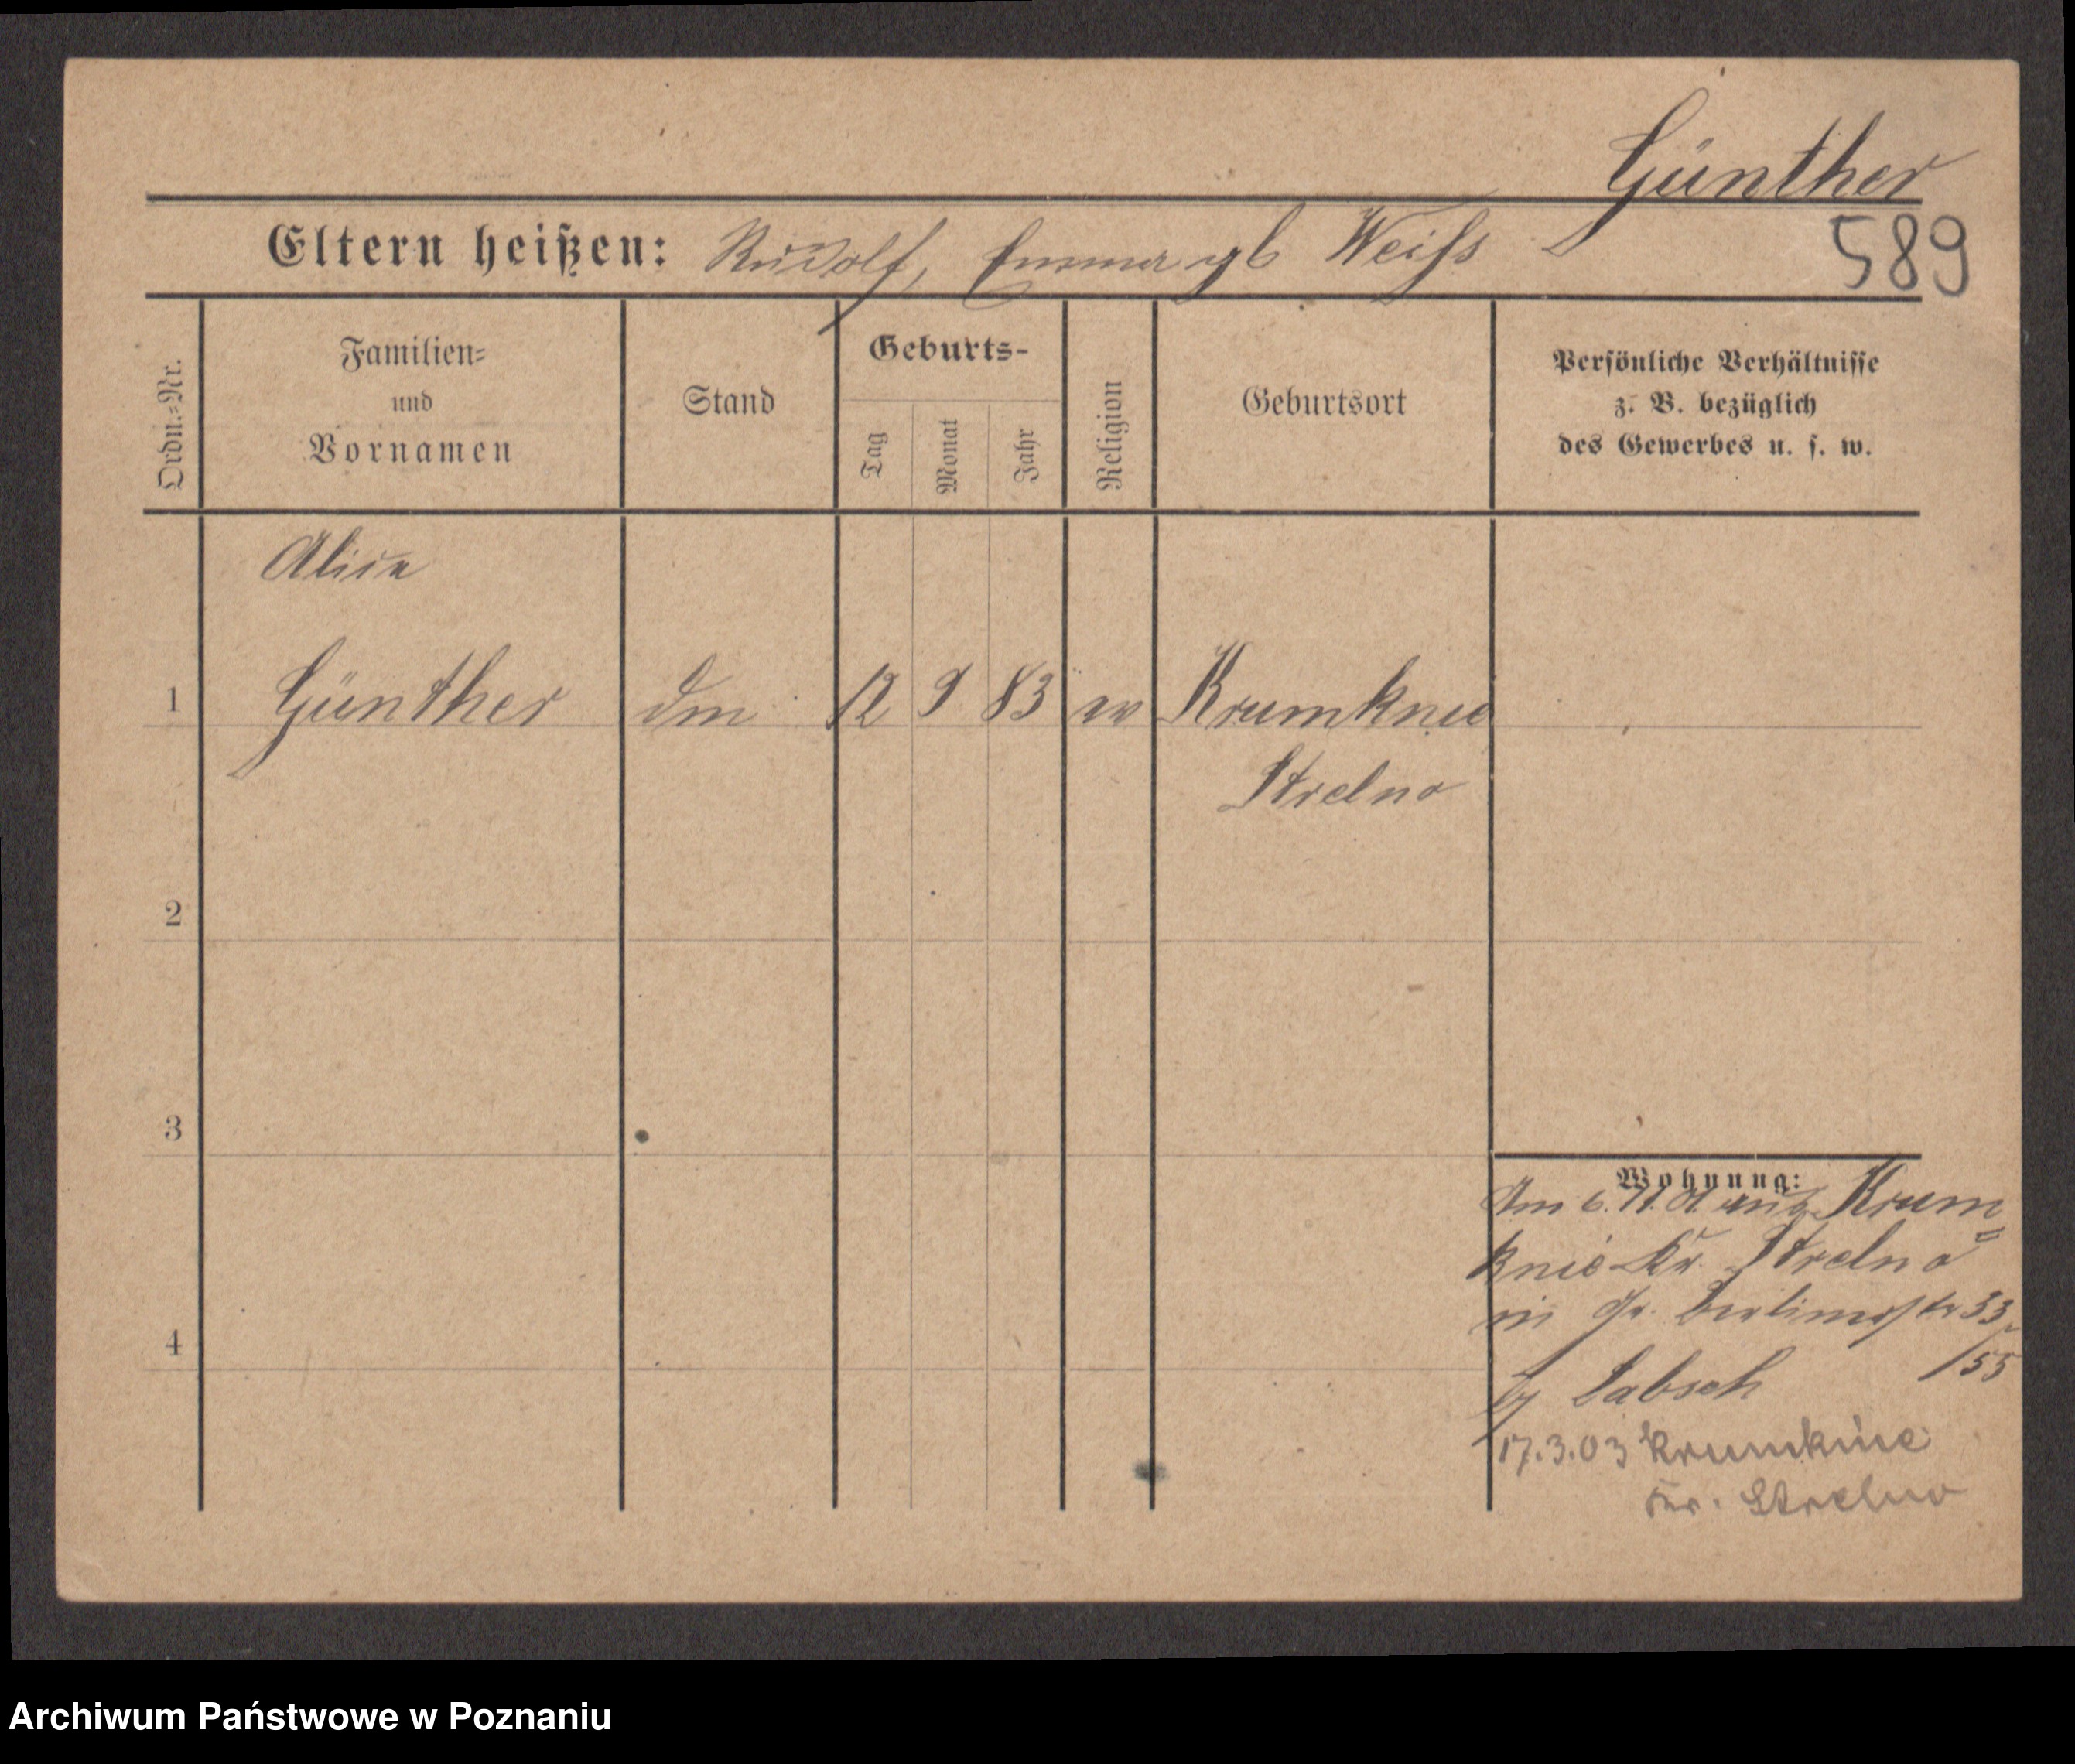 Günther
Eltern heißen: Rudolf, Emma gb Weiss
589
Ordn.=Nr.
Familien=
und
Vornamen
Stand
Geburts-
Tag
Monat
Jahr
Religion
Geburtsort
Persönliche Verhältnisse
z. B. bezüglich
des Gewerbes u. s. w.
Alice
1 Günther 12 9 83 ev Krumknie
Strelno
2
3
4
Wohnung:
Am 6. 11. 01 aus Krum
knie Kr. Strelno
in Gr. Berlinerstr 33
/55
Labsch
17.3.03 Krumknie
Kr. Strelno
Archiwum Państwowe w Poznaniu